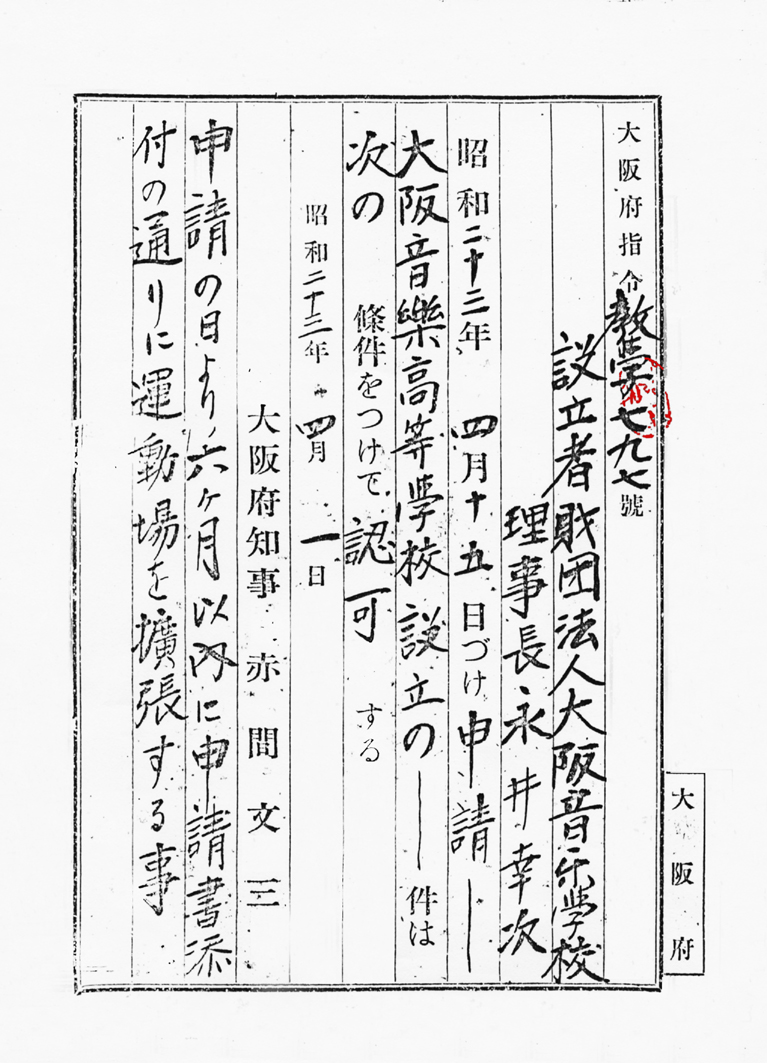 大阪府指令教學七九七號
設立者財団法人大阪音乐学校
理事長永井幸次
昭和二十三年四月十五日づけ申請―
大阪音樂高等學校設立の―件は
次の條件をつけて認可する
昭和二十三年四月一日
大阪府知事 赤間文三
申請の日より六ヶ月以内に申請書添
付の通りに運動場を擴張する事
大阪府